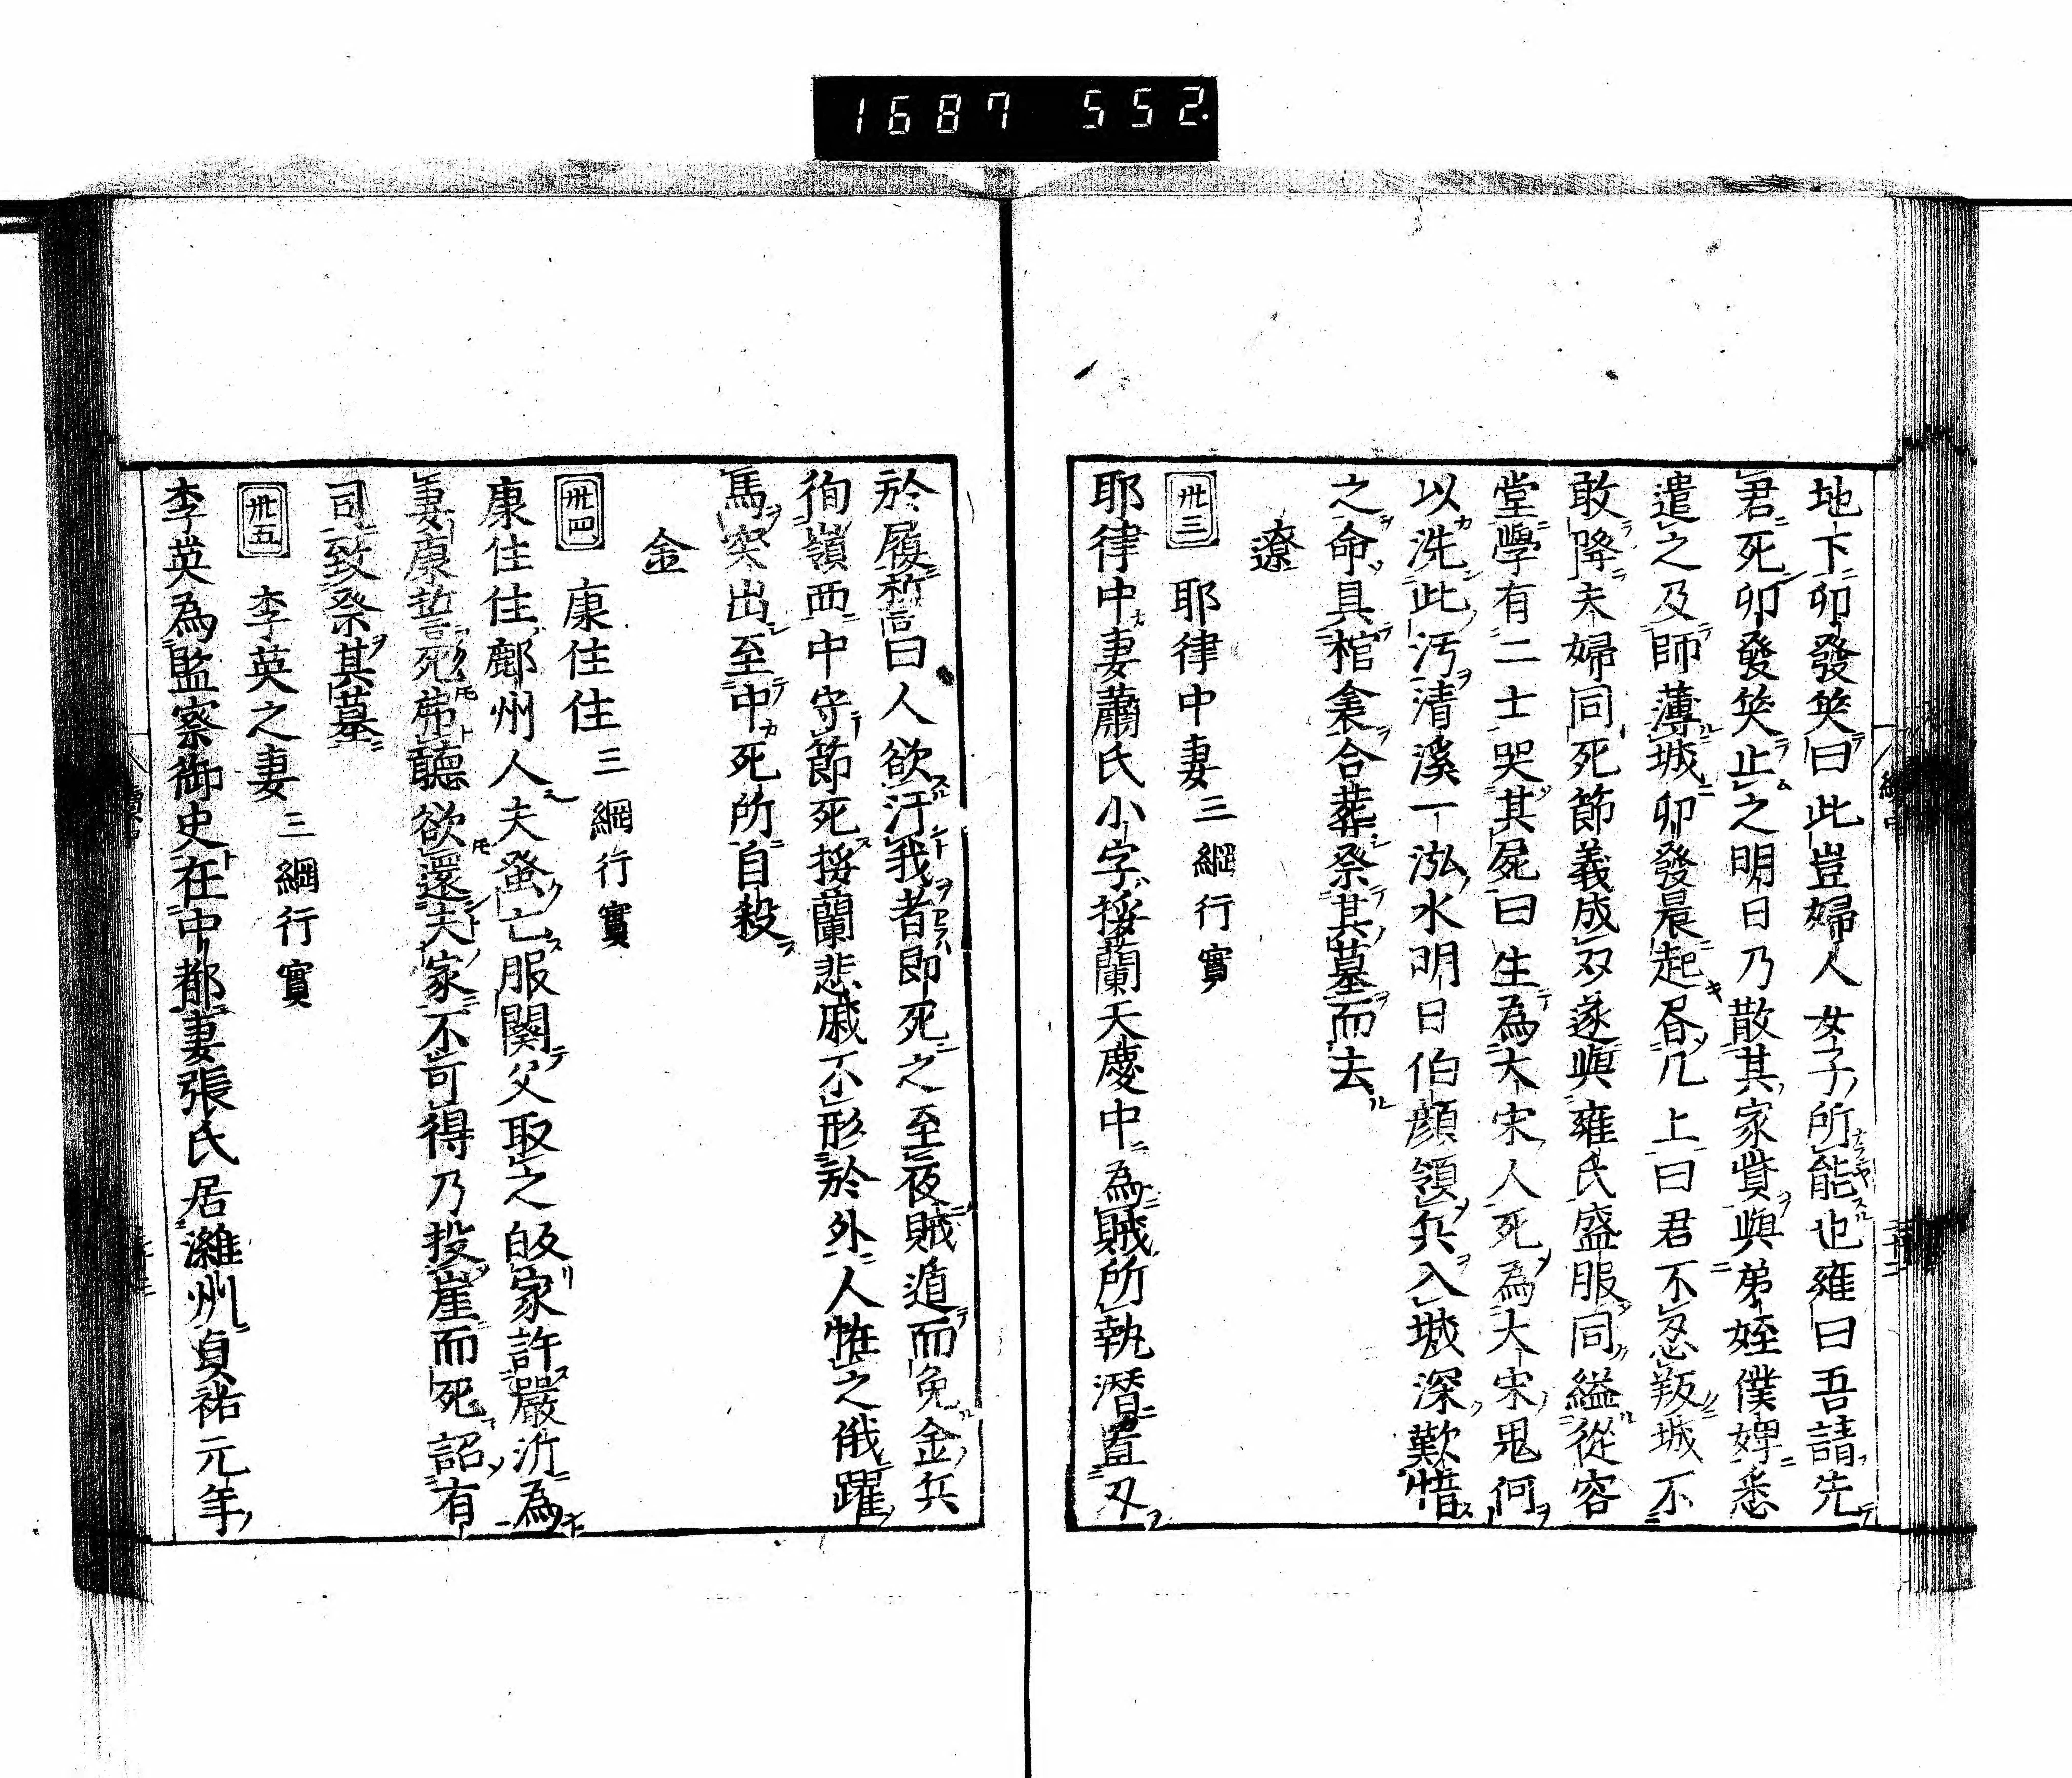 1687 552.
地下卯發笑曰此豈婦人女子所能也雍曰吾請先
君死卯發笑止之明日乃散其家貲與弟姪僕婢悉
遣之及師薄城卯發晨起書几上曰君不忍叛城不
敢降夫婦同死節義成双遂與雍氏盛服同縊從容
堂學有二士哭其屍曰生為大宋人死為大宋鬼何
以洗此汚清溪一泓水明日伯顔領兵入城深歎惜
之命具棺衾合葬祭其墓而去
遼
卅三 耶律中妻 三綱行實
耶律中妻蕭氏小字挼蘭天慶中為賊所執潜置刄
於履誓曰人欲汙我者即死之至夜賊遁而免金兵
徇嶺西中守節死挼蘭悲戚不形於外人恠之俄躍
馬突出至中死所自殺
金
卅四 康住住 三綱行實
康住住鄜州人夫蚤亡服闋父取之皈家許嚴沂為
妻康誓死弗聽欲還夫家不可得乃投崖而死詔有
司致祭其墓
卅五 李英之妻 三綱行實
李英為監察御史在中都妻張氏居濰州貞祐元年